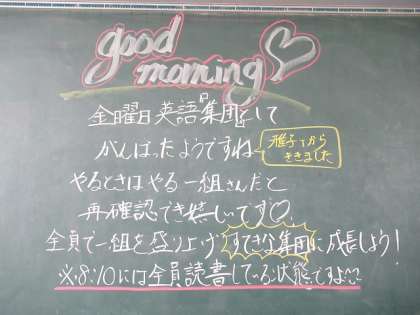 good
morning ♡
金曜日 英語 集団として
がんばったようですね
雅子Tから
ききました
やるときはやる一組さんだと
再確認でき嬉しいです♡
全員で一組を盛り上げ すてきな集団に成長しよう！
※8:10には全員読書している状態ですよ